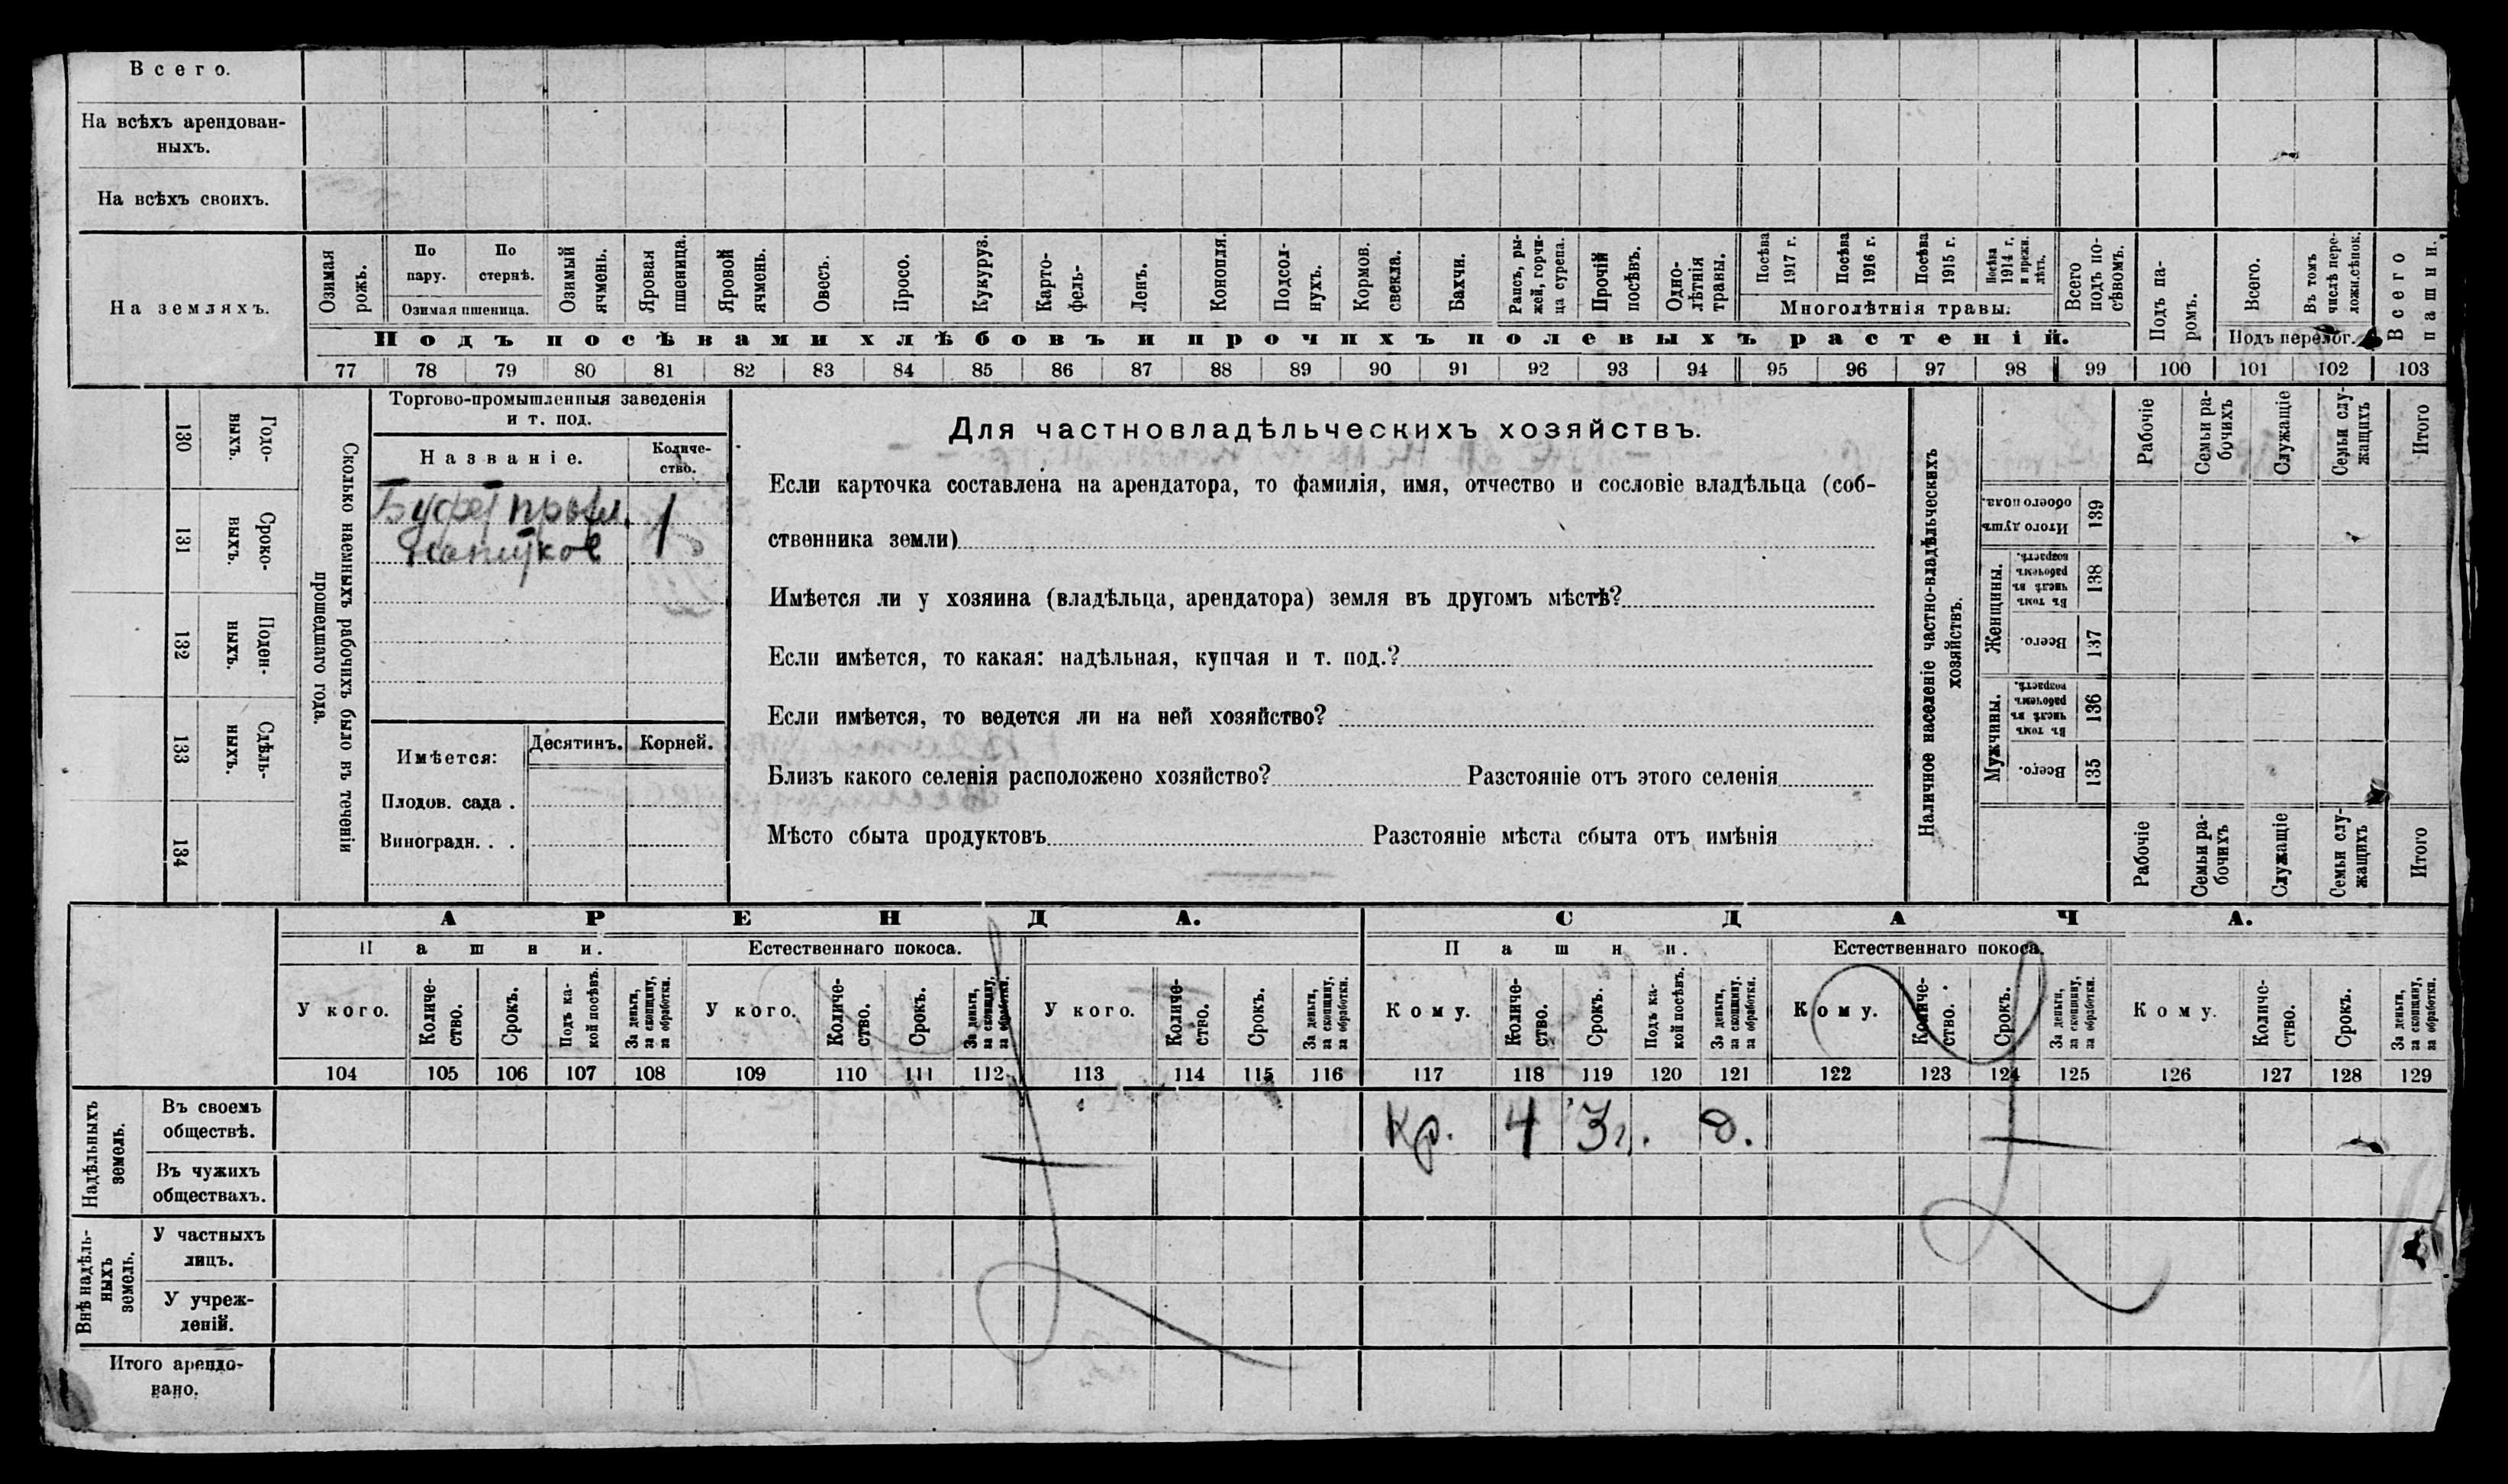 Всего.
На всѣхъ арендован-
ныхъ.
На всѣхъ своихъ.
На земляхъ.
Озимая рожь.
По пару.
По стернѣ.
Озимая пшеница.
Озимый ячмень.
Яровая пшеница.
Яровой ячмень.
Овесъ.
Просо.
Кукуруз.
Карто-
фель-
Ленъ.
Конопля.
Подсол-
нухъ.
Кормов. свекла.
Бахчи.
Рапсъ, ры-
жей, горчи-
ца сурепа.
Прочій посѣвъ.
Одно-
лѣтнія травы.
Посѣва 1917 г.
Посѣва 1916 г.
Посѣва 1915 г.
Посѣва 1914 г. и прежн. лѣтъ.
Многолѣтнія травы.
Всего подъ по-
сѣвомъ.
Подъ посѣвами хлѣбовъ и прочихъ полевыхъ растеній.
Подъ па-
ромъ.
Всего.
Въ томъ числѣ пере-
ложн.сѣнок.
Подъ перелог.
Всего пашни.
77 78 79 80 81 82 83 84 85 86 87 88 89 90 91 92 93 94 95 96 97 98 99 100 101 102 103
Сколько наемныхъ рабочихъ было въ теченіи
прошедшаго года.
Годо-
выхъ.
130
Сроко-
выхъ.
131
Поден-
ныхъ.
132
Сдѣль-
ныхъ.
133
134
Торгово-промышленныя заведенія
и т. под.
Названіе.
Количе-
ство.
Буфет прохл. 1
напитков
Имѣется:
Десятинъ.
Корней.
Плодов. сада .
Виноградн. . .
Для частновладѣльческихъ хозяйствъ.
Если карточка составлена на арендатора, то фамилія, имя, отчество и сословіе владѣльца (соб-
ственника земли)
Имѣется ли у хозяина (владѣльца, арендатора) земля въ другомъ мѣстѣ?
Если имѣется, то какая: надѣльная, купчая и т. под.?
Если имѣется, то ведется ли на ней хозяйство?
Близъ какого селенія расположено хозяйство? Разстояніе отъ этого селенія
Мѣсто сбыта продуктовъ Разстояніе мѣста сбыта отъ имѣнія
Наличное населеніе частно-владѣльческихъ
хозяйствъ.
Рабочіе
Семьи ра-
бочихъ
Служащіе
Семьи слу-
жащихъ
Итого
Итого душъ обоего пола.
139
Женщины.
Въ томъ числѣ въ рабочемъ возрастѣ.
138
Всего.
137
Мужчины.
Въ томъ числѣ въ рабочемъ возрастѣ.
136
Всего.
135
Рабочіе
Семьи ра-
бочихъ
Служащіе
Семьи слу-
жащихъ
Итого
АРЕНДА.
СДАЧА.
Пашни.
Естественнаго покоса.
Пашни.
Естественнаго покоса.
У кого.
Количе-
ство.
Срокъ.
Подъ ка-
кой посѣвъ.
За деньги, за скопщину, за обработки.
У кого.
Количе-
ство.
Срокъ.
За деньги, за скопщину, за обработки.
У кого.
Количе-
ство.
Срокъ.
За деньги, за скопщину, за обработки.
Кому.
Количе-
ство.
Срокъ.
Подъ ка-
кой посѣвъ.
За деньги, за скопщину, за обработки.
Кому.
Количе-
ство.
Срокъ.
За деньги, за скопщину, за обработки.
Кому.
Количе-
ство.
Срокъ.
За деньги, за скопщину, за обработки.
104 105 106 107 108 109 110 111 112 113 114 115 116 117 118 119 120 121 122 123 124 125 126 127 128 129
Надѣльныхъ
земель.
Въ своемъ
обществѣ.
Кр. 4 3 г. д.
Въ чужихъ
обществахъ.
Внѣ надѣль-
ныхъ
земель.
У частныхъ
лицъ.
У учреж-
деній.
Итого арендо-
вано.